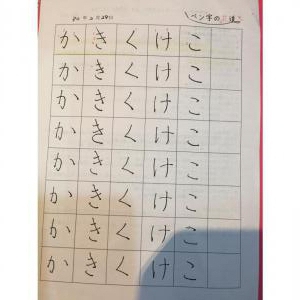 ペン字の
か き く け こ
か き く け こ
か き く け こ
か き く け こ
か き く け こ
か き く け こ
か き く け こ
か き く け こ